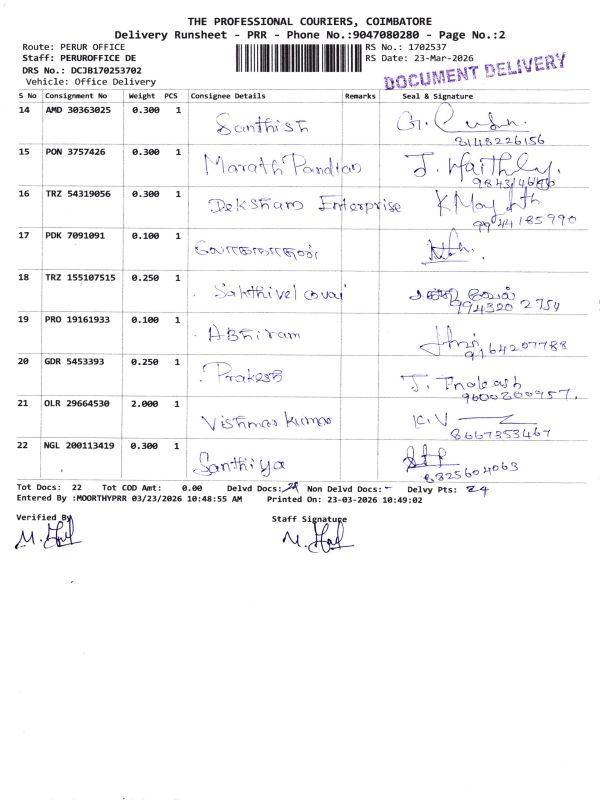 THE PROFESSIONAL COURIERS, COIMBATORE
Delivery Runsheet - PRR - Phone No.:9047080280 - Page No.:2
Route: PERUR OFFICE
RS No.: 1702537
Staff: PERUROFFICE DE
RS Date: 23-Mar-2026
DRS No.: DCJB170253702
Vehicle: Office Delivery
DOCUMENT DELIVERY
S No Consignment No Weight PCS Consignee Details Remarks Seal & Signature
14 AMD 30363025 0.300 1 Santhish
8148226156
15 PON 3757426 0.300 1 Marathi Pandian J.
16 TRZ 54319056 0.300 1 Deksham Enterprise
9944185990
17 PDK 7091091 0.100 1
18 TRZ 155107515 0.250 1 Sakthivel covai
994320 2754
19 PRO 19161933 0.100 1 Abhiram
9164207788
20 GDR 5453393 0.250 1 Prakesh J.
9600200957.
21 OLR 29664530 2.000 1 Vishnu Kumar K.V
8667353467
22 NGL 200113419 0.300 1 Santhiya
6325604063
Tot Docs: 22 Tot COD Amt: 0.00 Delvd Docs: Non Delvd Docs: - Delvy Pts: 24
Entered By :MOORTHYPRR 03/23/2026 10:48:55 AM Printed On: 23-03-2026 10:49:02
Verified By Staff Signature